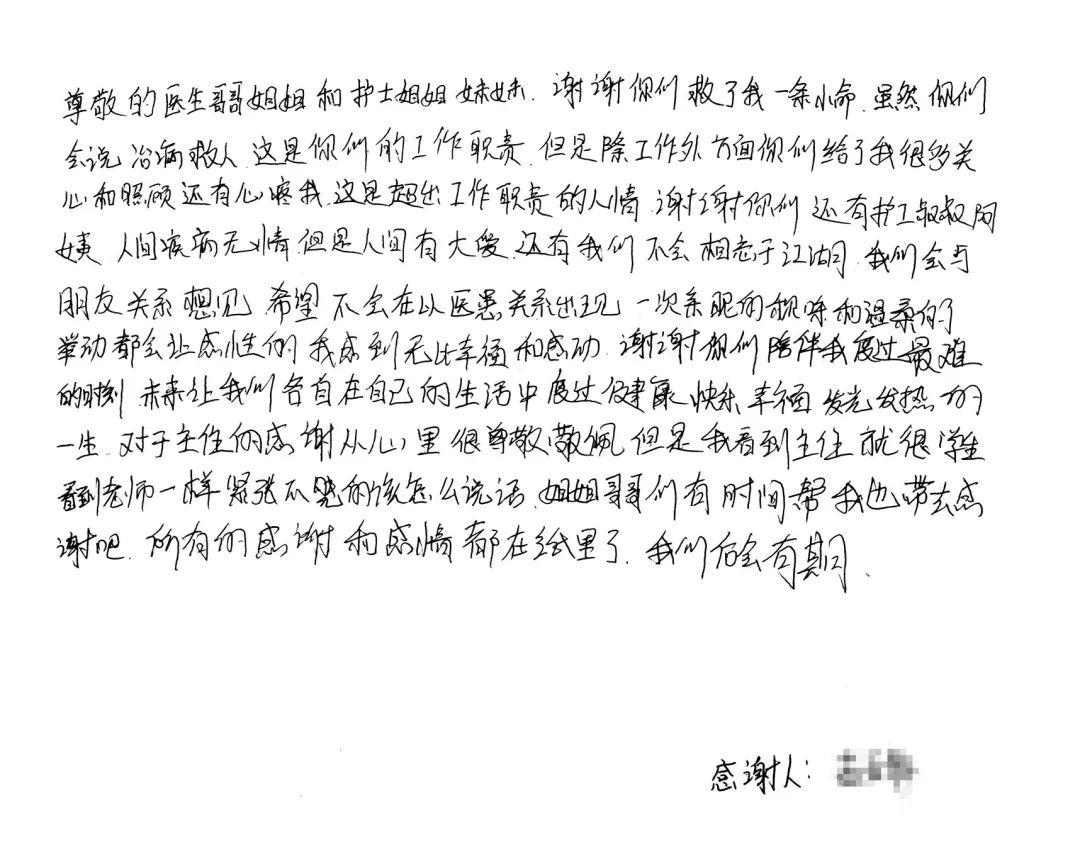 尊敬的医生哥哥姐姐和护士姐姐妹妹.谢谢你们救了我一条小命.虽然你们
会说治病救人.这是你们的工作职责.但是除工作外方面你们给了我很多关
心和照顾还有心疼我.这是超出工作职责的人情.谢谢你们还有护工叔叔阿
姨.人间疾病无情但是人间有大爱.还有我们不会相忘于江湖.我们会与
朋友关系想见.希望不会在以医患关系出现.一次亲昵的称呼和温柔的
举动都会让感性的我感到无比幸福和感动.谢谢你们陪伴我度过最难
的时刻.未来让我们各自在自己的生活中度过健康.快乐.幸福.发光发热的
一生.对于主任的感谢从心里很尊敬.敬佩.但是我看到主任就很学生
看到老师一样紧张不觉的该怎么说话.姐姐哥哥们有时间帮我也带去感
谢吧.所有的感谢和感情都在纸里了.我们后会有期.
感谢人: